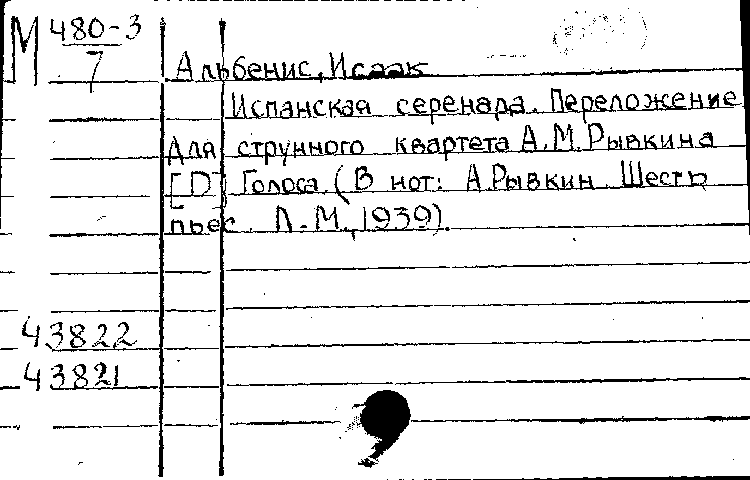 М 480-3
7
Альбенис, Исаак
Испанская серенада. Переложение
для струнного квартета А.М. Рывкина
[D] Голоса. (В нот: А.Рывкин. Шесть
пьес. Л.-М., 1939).
43822
43821